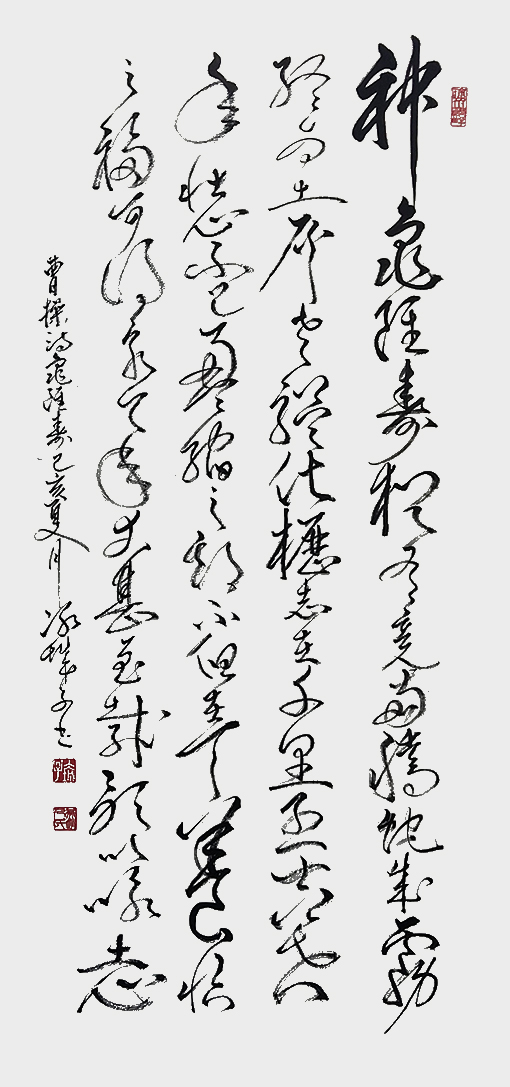 神龜雖壽猶有竟時騰蛇成霧
終為土灰老驥伏櫪志在千里烈士暮
年壯心不已盈縮之期不但在天養怡
之福可得永年幸甚至哉歌以詠志
曹操詩龜雖壽己亥夏月 子書